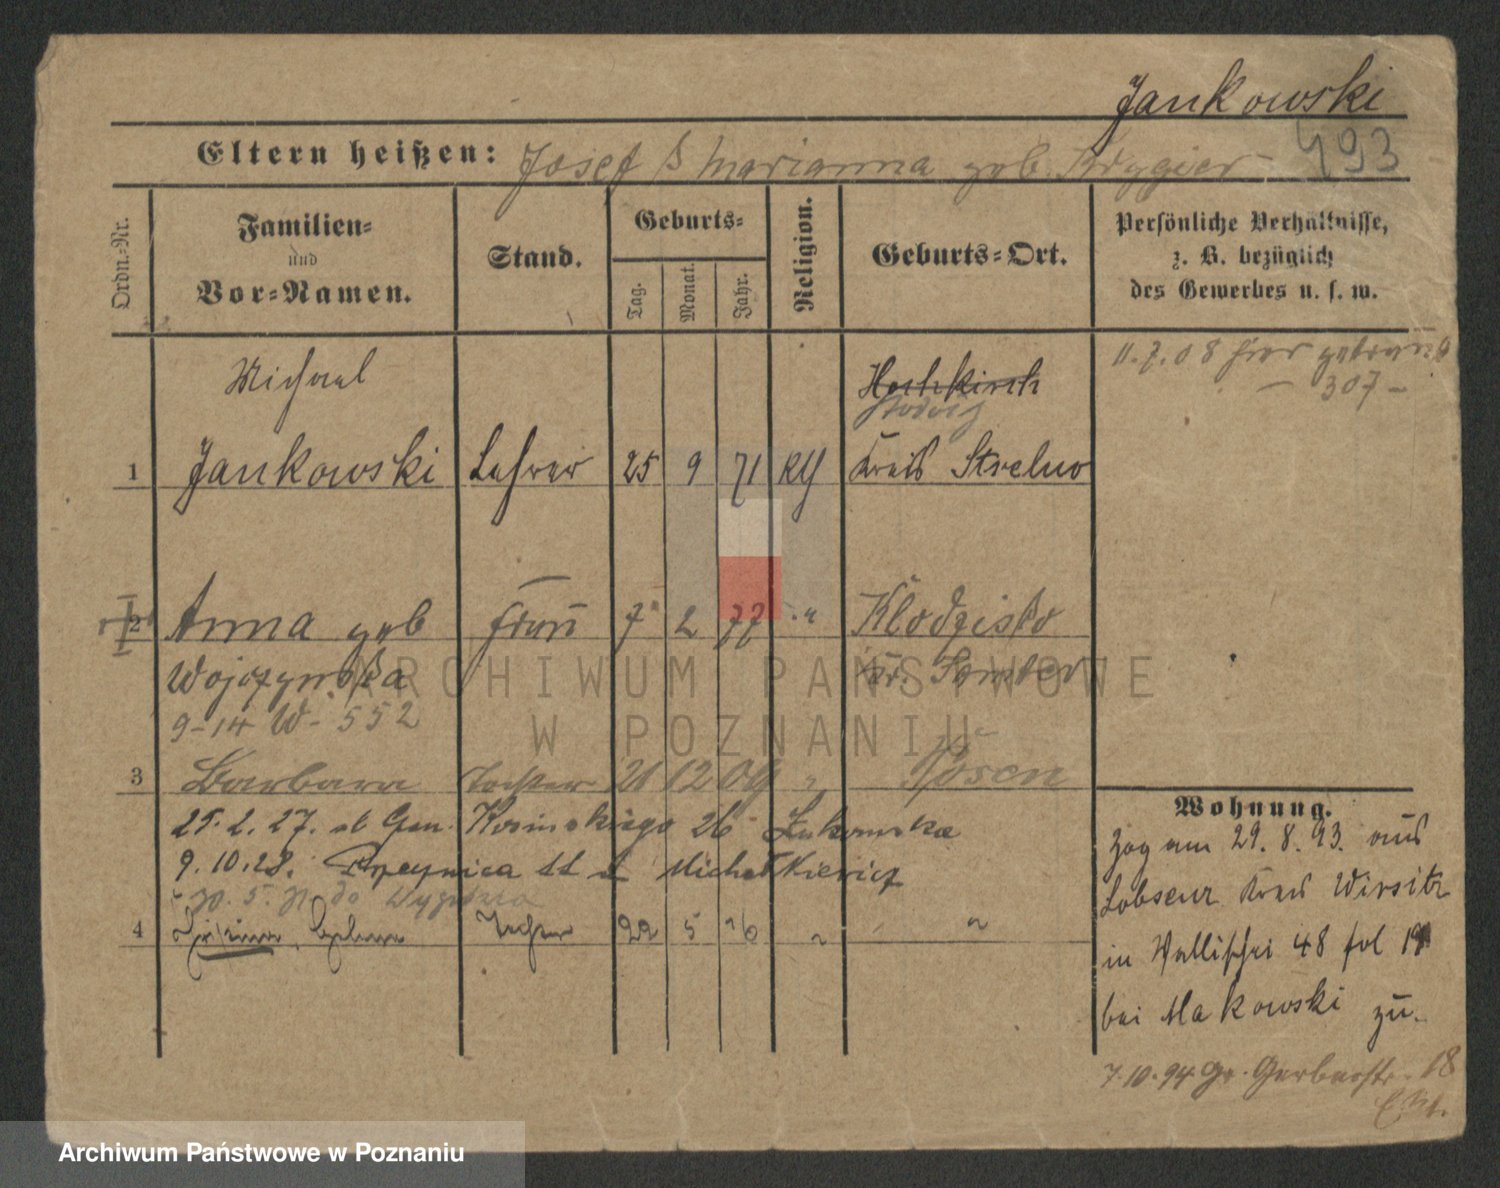 Jankowski
Eltern heißen: Josef & Marianna geb. Krygier
493
Ordn.-Nr.
Familien- und Vor-Namen.
Stand.
Geburts-
Tag.
Monat.
Jahr.
Religion.
Geburts-Ort.
Persönliche Verhältnisse,
z. B. bezüglich
des Gewerbes u. s. w.
11.7.08 hier getraut
- 307 -
Michael
Hochkirch
1 Jankowski Lehrer 25 9 71 Kth Kreis Strelno
2 Anna geb Frau 7 2 77 " Klodzisko
Wojczynska Kr. Samter
9-14 W- 552
3 Barbara Tochter 21 12 09 " Posen
25.2.27. Gen. Kosinskiego 26 Żukowska
9.10.28. 11 Michałkiewicz
4 Tochter 22 5 "
Wohnung.
Zog am 29. 8. 93. aus
Lobsens Kreis Wirsitz
in Wallischei 48 fol
bei Makowski zu.
7.10.94 Gr. Gerberstr. 18
ARCHIWUM PAŃSTWOWE
W POZNANIU
Archiwum Państwowe w Poznaniu